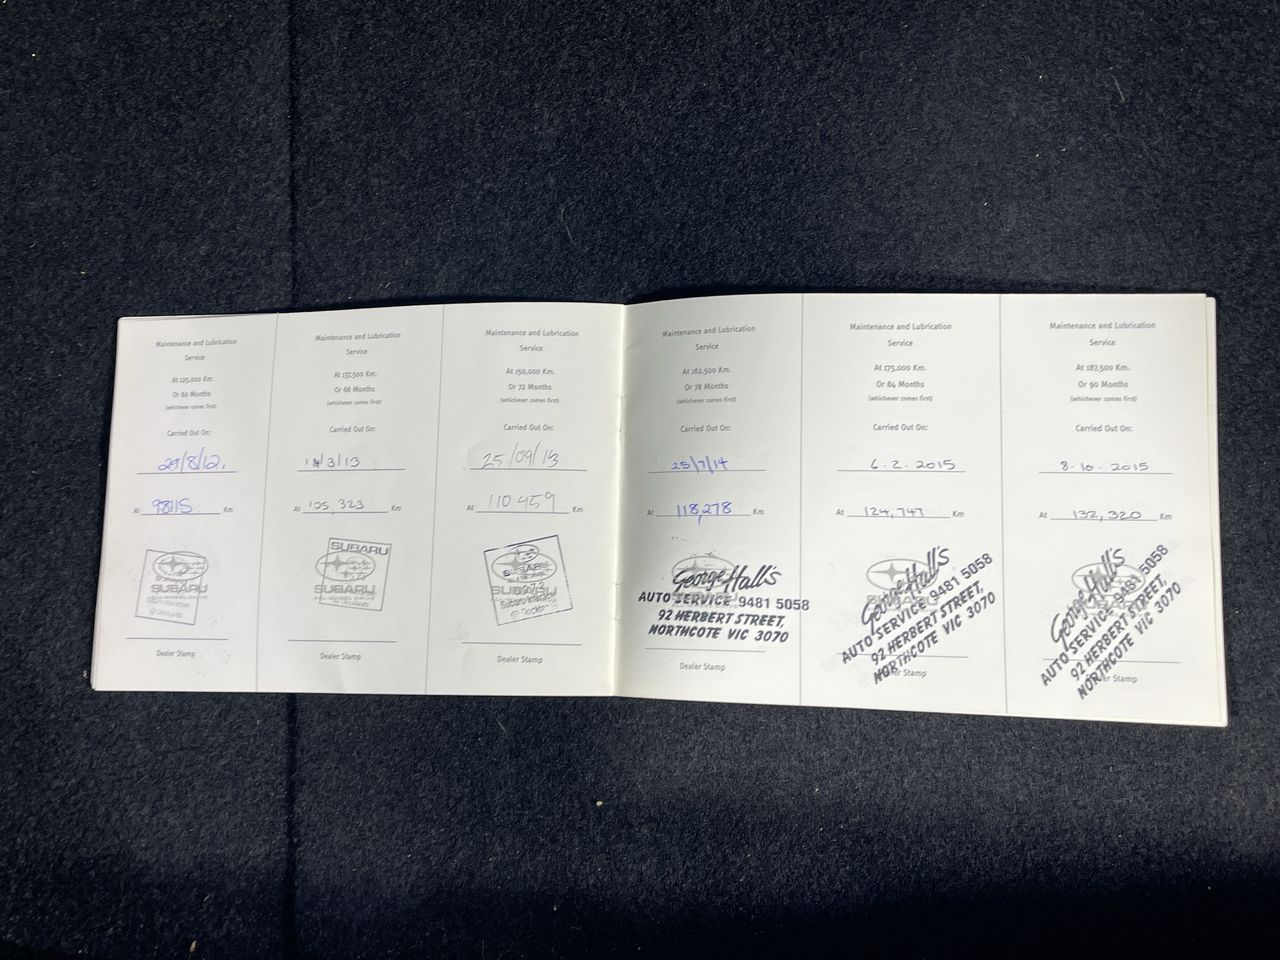 Maintenance and Lubrication
Service
At 125,000 Km.
Or 60 Months
(whichever comes first)
Carried Out On:
29/8/12.
At 98115 Km
SUBARU
Dealer Stamp
Maintenance and Lubrication
Service
At 137,500 Km.
Or 66 Months
(whichever comes first)
Carried Out On:
/3/13
At 105,323 Km
SUBARU
SUBARU
ALL-WHEEL DRIVE
Dealer Stamp
Maintenance and Lubrication
Service
At 150,000 Km.
Or 72 Months
(whichever comes first)
Carried Out On:
25/09/13
At 110 459 Km
SUBARU
Dealer Stamp
Maintenance and Lubrication
Service
At 162,500 Km.
Or 78 Months
(whichever comes first)
Carried Out On:
25/7/14
At 118,278 Km
George Hall's
AUTO SERVICE 9481 5058
92 HERBERT STREET,
NORTHCOTE VIC 3070
Dealer Stamp
Maintenance and Lubrication
Service
At 175,000 Km.
Or 84 Months
(whichever comes first)
Carried Out On:
6.2.2015
At 124,747 Km
George Hall's
AUTO SERVICE 9481 5058
92 HERBERT STREET,
NORTHCOTE VIC 3070
Stamp
Maintenance and Lubrication
Service
At 187,500 Km.
Or 90 Months
(whichever comes first)
Carried Out On:
8.10.2015
At 132,320 Km
George Hall's
AUTO SERVICE 9481 5058
92 HERBERT STREET,
NORTHCOTE VIC 3070
Stamp